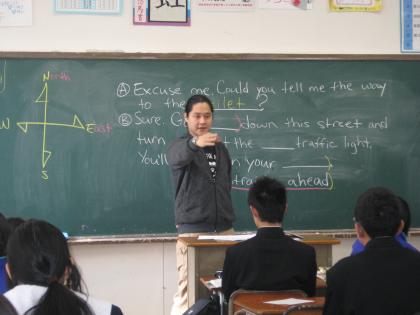 North
W
East
S
Ⓐ Excuse me. Could you tell me the way
to the let ?
Ⓑ Sure. G down this street and
turn the traffic light,
You'll n your
traffic ahead